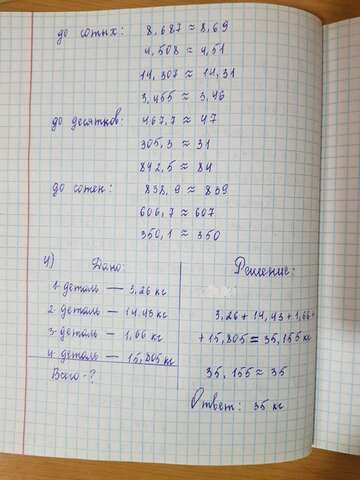 до сотых: 8,687 ≈ 8,69
4,508 ≈ 4,51
14,307 ≈ 14,31
3,455 ≈ 3,46
до десятков: 467,7 ≈ 47
305,3 ≈ 31
842,5 ≈ 84
до сотен: 838,9 ≈ 839
606,7 ≈ 607
350,1 ≈ 350
4) Дано:
1 деталь — 3,26 кг
2 деталь — 14,43 кг
3 деталь — 1,66 кг
4 деталь — 15,805 кг
Всего - ?
Решение:
3,26 + 14,43 + 1,66 +
+ 15,805 = 35,155 кг
35,155 ≈ 35
Ответ: 35 кг